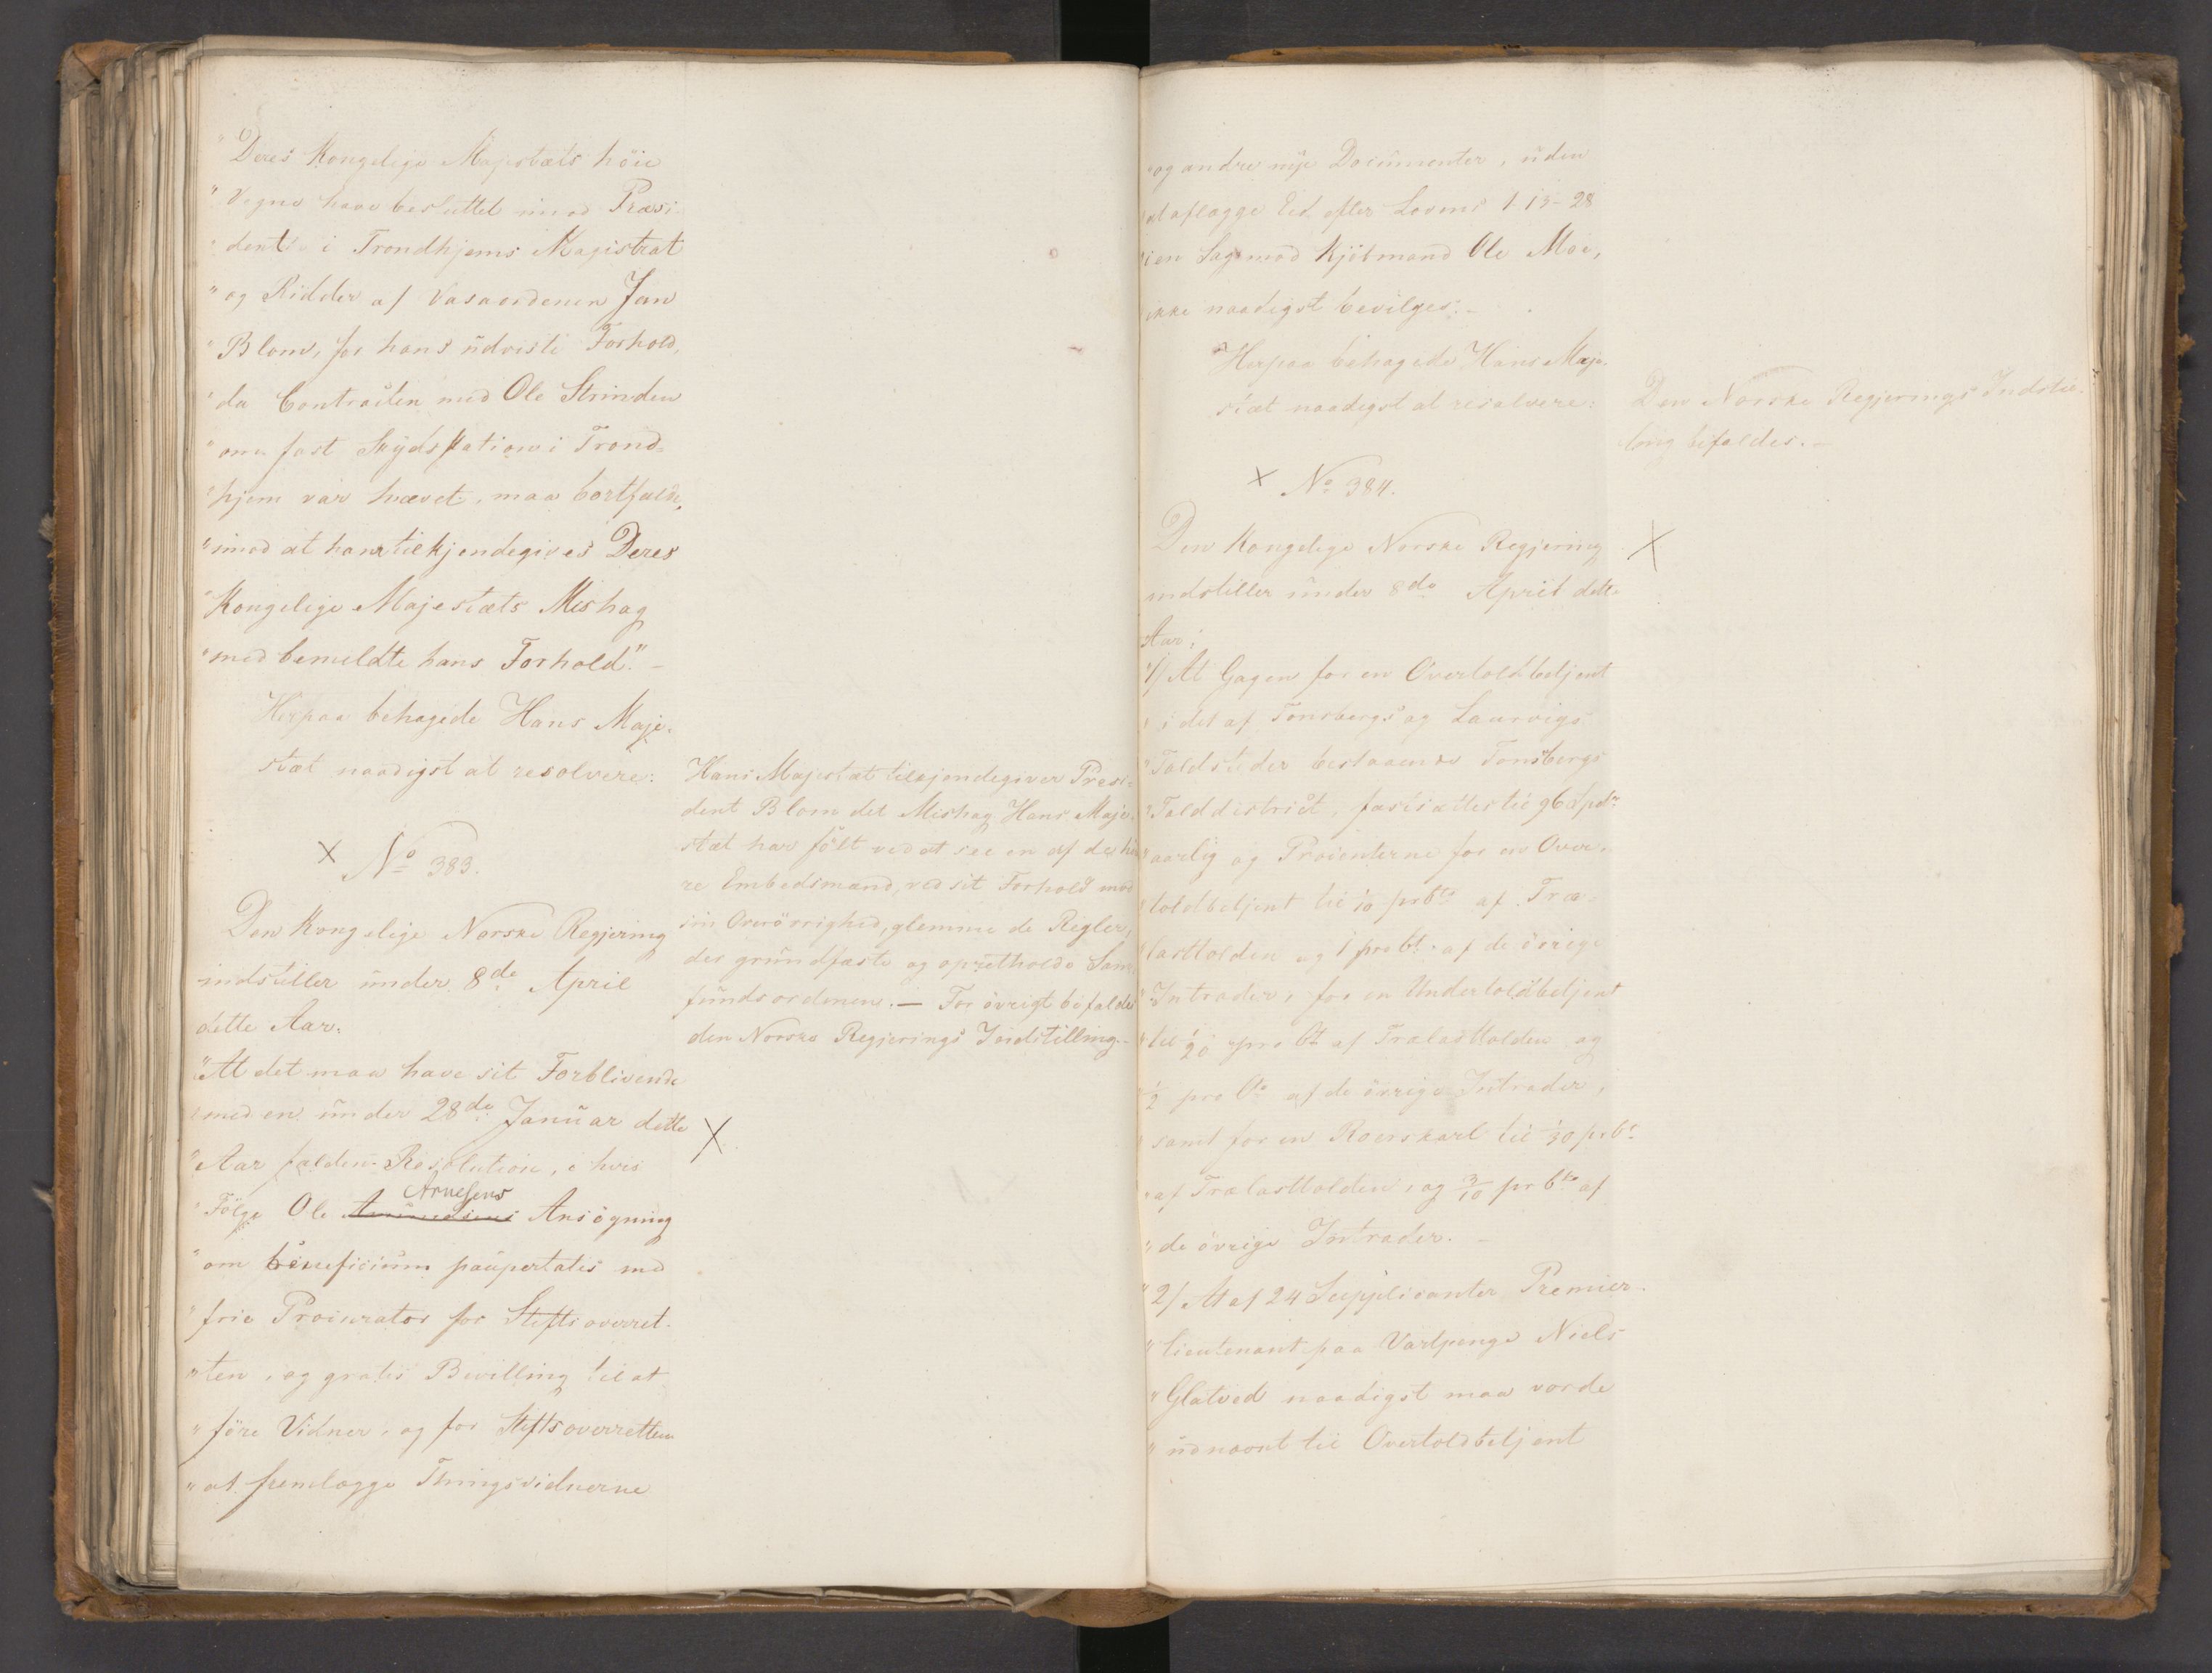 "Deres Kongelige Majestæts höie
"Vegne have besluttet imod Præsi-
"dent i Trondhjems Magistrat
"og Ridder af Vasaordenen Jan
"Blom, for hans udviste Forhold,
"da Contracten med Ole Strinden
"om fast Skydsstation i Trond-
"hjem var hævet, maa bortfalde,
"imod at ham tilkjendegives Deres
"Kongelige Majestæts Mishag
"med bemeldte hans Forhold." –
Herpaa behagede Hans Maje-
stæt naadigst at resolvere:
Hans Majestæt tilkjendegiver Præsi-
dent Blom det Mishag Hans Maje-
stæt har fölt ved at see en af de hö
re Embedsmænd, ved sit Forhold mod
sin Overörrighed, glemme de Regler,
der grundfæste og opretholde Sam-
fundsordenen. – For övrigt bifaldes
den Norske Regjerings Indstilling. –
× No 383.
Den Kongelige Norske Regjering
indstiller under 8de April
dette Aar:
"At det maa have sit Forblivende
"med en under 28de Januar dette ×
"Aar falden Resolution, i hvis
Arnesens
"Fölge Ole Ansögning
"om beneficium paupertatis med
"frie Procurator for Stiftsoverret-
"ten, og gratis Bevilling til at
"före Vidner, og for Stiftsoverretten
"at fremlægge Thingsvidnerne
"og andre nye Documenter, uden
"at aflægge Eed efter Lovens 1-13-28
"i en Sag mod Kjöbmand Ole Moe,
"ikke naadigst bevilges". –
Herpaa behagede Hans Maje-
stæt naadigst at resolvere:
Den Norske Regjerings Indstil-
ling bifaldes. –
× No 384.
Den Kongelige Norske Regjering ×
indstiller under 8de April dette
Aar:
"1/ At Gagen for en Overtoldbetjent
"i det af Tonsbergs og Laurvigs
"Toldsteder bestaaende Tonsbergs
"Tolddistrict, fastsættes til 96 Spdr
"aarlig og Procenterne for en Over-
"toldbetjent til 1/10 pr Ct af Træ-
"lasttolden og 1 pro Ct. af de övrige
"Intrader, for en Undertoldbetjent
"til 1/20 pro Ct af Trælasttolden og
"1/2 pro Ct af de övrige Intrader,
"samt for en Roerskarl til 1/30 pr Ct
"af Trælasttolden, og 3/10 pr Cto af
"de övrige Intrader. –
"2/ At af 24 Supplicanter Premier-
"lieutenant paa Vartpenge Niels
"Glatved naadigst maa vorde
"udnævnt til Overtoldbetjent